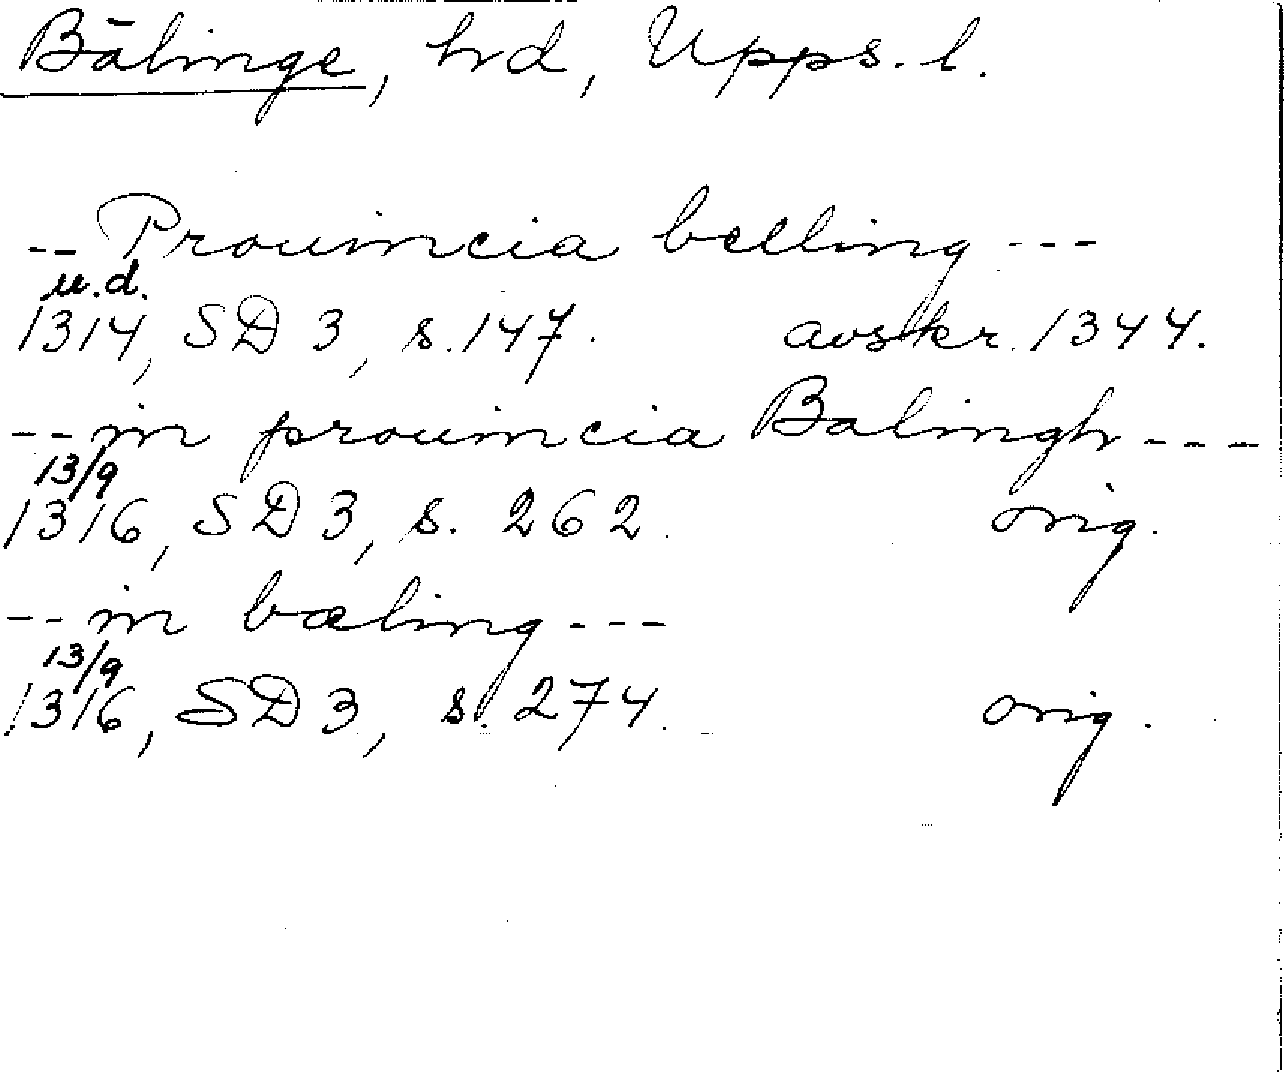 Bälinge, hd, Upps. l.
-- Prouincia belling ---
u.d.
1314, SD 3, s. 147. avskr. 1344.
-- in prouincia Balingh ---
13/9
1316, SD 3, s. 262. orig.
-- in bæling ---
13/9
1316, SD 3, s. 274. orig.